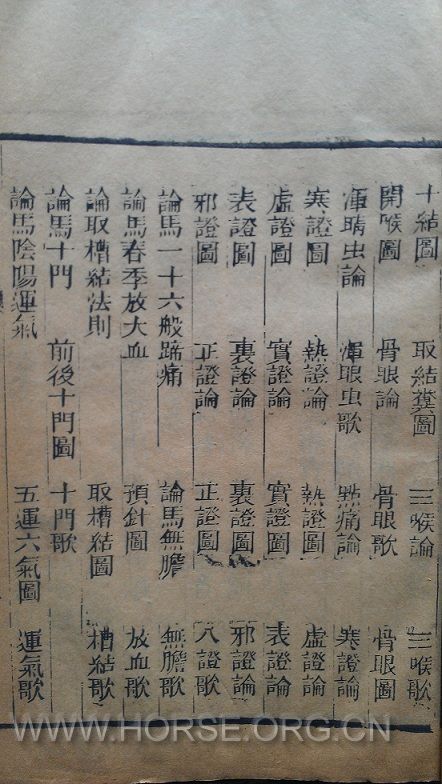 十結圖 取結糞圖 三喉論 三喉歌
開喉圖 骨眼論 骨眼歌 骨眼圖
渾睛虫論 渾眼虫歌 點痛論 寒證論
寒證圖 熱證論 熱證圖 虛證論
虛證圖 實證論 實證圖 表證論
表證圖 裏證論 裏證圖 邪證論
邪證圖 正證論 正證圖 八證歌
論馬一十六般蹄痛 論馬無膽 無膽歌
論馬春季放大血 預針圖 放血歌
論取槽結法則 取槽結圖 槽結歌
論馬十門 前後十門圖 十門歌
論馬陰陽運氣 五運六氣圖 運氣歌
WWW.HORSE.ORG.CN